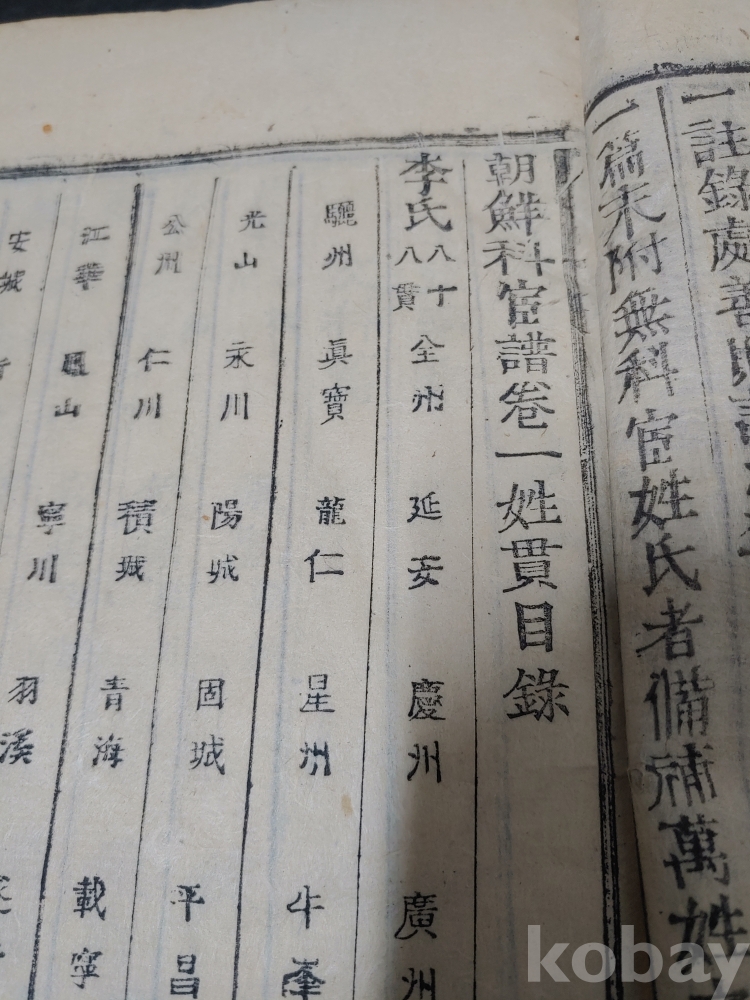 一註錄處善
一篇末附無科宦姓氏者備補萬姓
朝鮮科宦譜卷一姓貫目錄
李氏 八十八貫 全州 延安 慶州 廣州
驪州 眞寶 龍仁 星州 牛峯
光山 永川 陽城 固城 平昌
公州 仁川 積城 青海 載寧
江華 鳳山 寧川 羽溪
安城
kobay